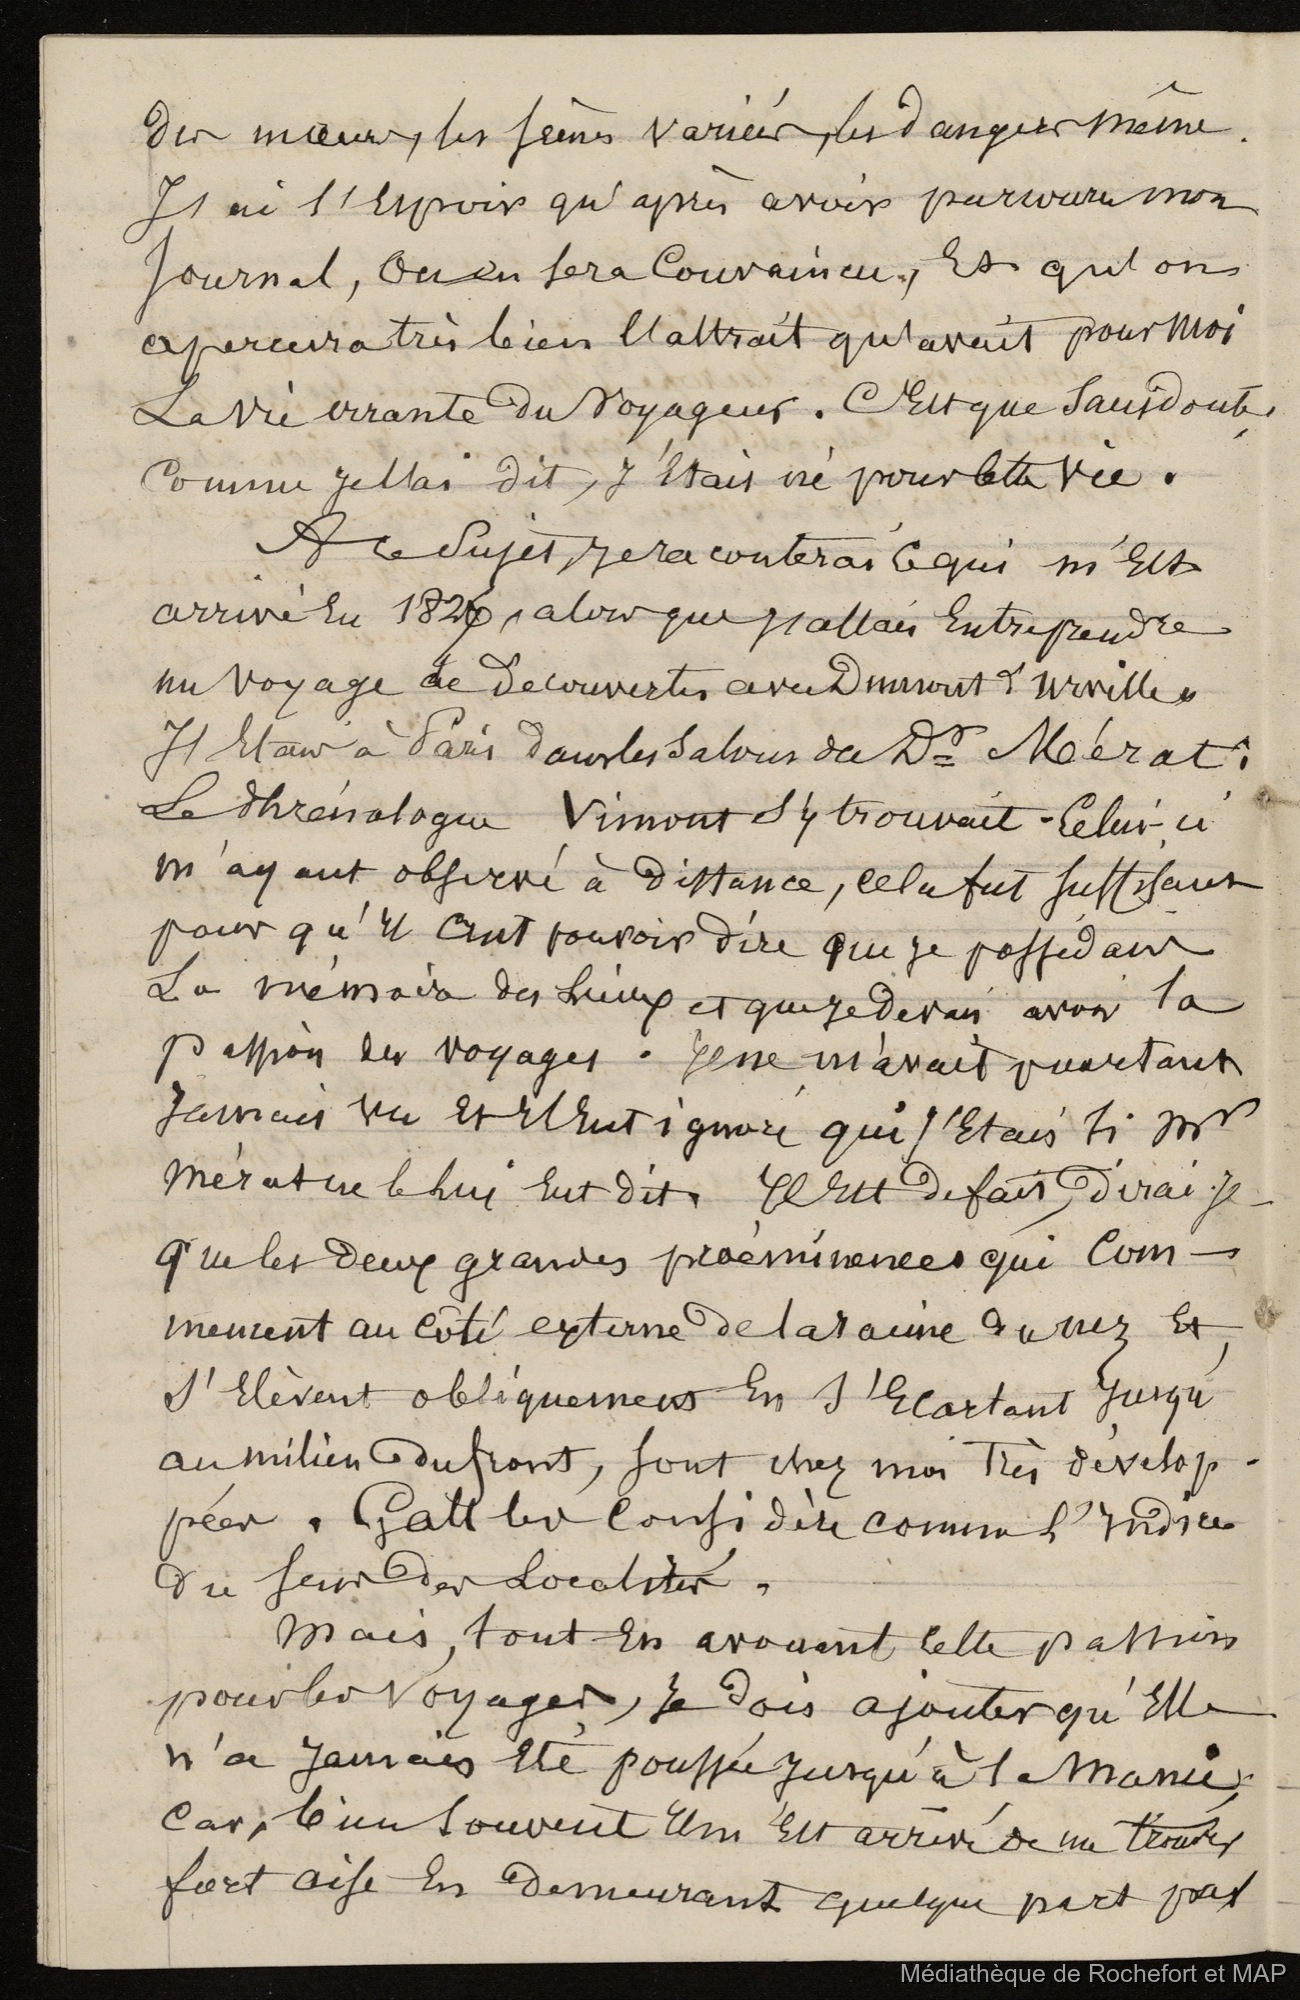 des mœurs, les scènes variées, les dangers même.
J'ai l'Espoir qu'après avoir parcouru mon
Journal, On en sera Convaincu, Et qu'on
apercevra très bien l'attrait qu'avait pour Moi
La vie errante du Voyageur. C'Est que Sans doute,
Comme je l'ai dit, j'Etais né pour Cette vie.
A ce Sujet, je raconterai Ce qui m'Est
arrivé En 1826, alors que j'allais Entreprendre
un voyage de Découvertes avec Dumont d'Urville.
J'Etais à Paris dans les Salons du Dr Mérat;
Le Phrénologue Vimont s'y trouvait. Celui-ci
m'ayant observé à distance, cela fut suffisant
pour qu'il Crut pouvoir dire que je possédais
La mémoire des Lieux et que je devais avoir la
passion des voyages. Il ne m'avait pourtant
Jamais vu Et Il Eut ignoré qui j'Etais si Mr
Mérat ne le lui Eut dit. Il Est de fait, dirai-je
que les Deux grandes proéminences qui Com-
mencent au Côté externe de la racine du nez Et,
s'Elèvent obliquement En s'Ecartant Jusqu'
au milieu du front, sont chez moi Très dévelop-
pées. Gall les Considère comme l'Indice
du sens des Localités.
Mais, tout En avouant Cette passion
pour les Voyages, Je dois ajouter qu'Elle
n'a Jamais Eté poussée jusqu'à la Manie,
Car, bien Souvent Il m'Est arrivé de me trouver
fort aise En Demeurant quelque part par
Médiathèque de Rochefort et MAP